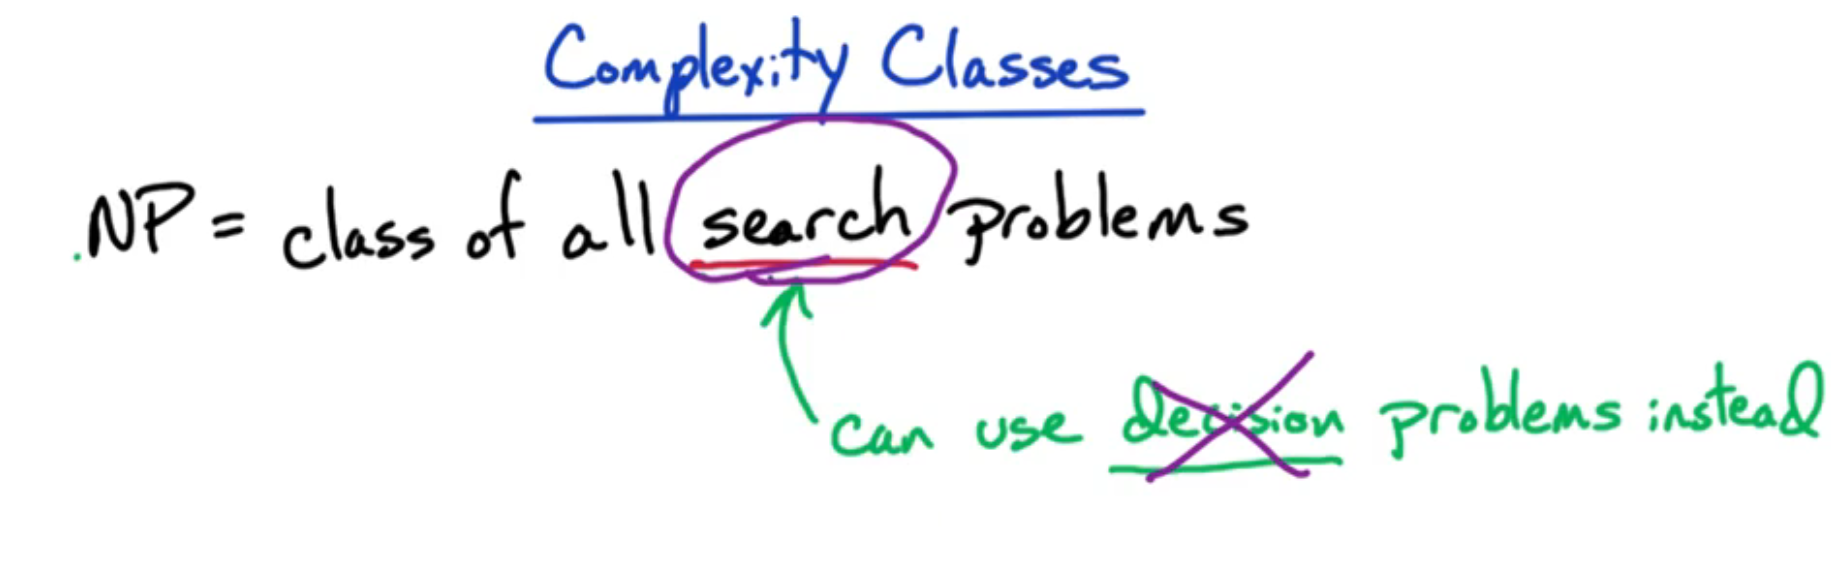 Complexity Classes
NP = class of all search problems
can use decision problems instead